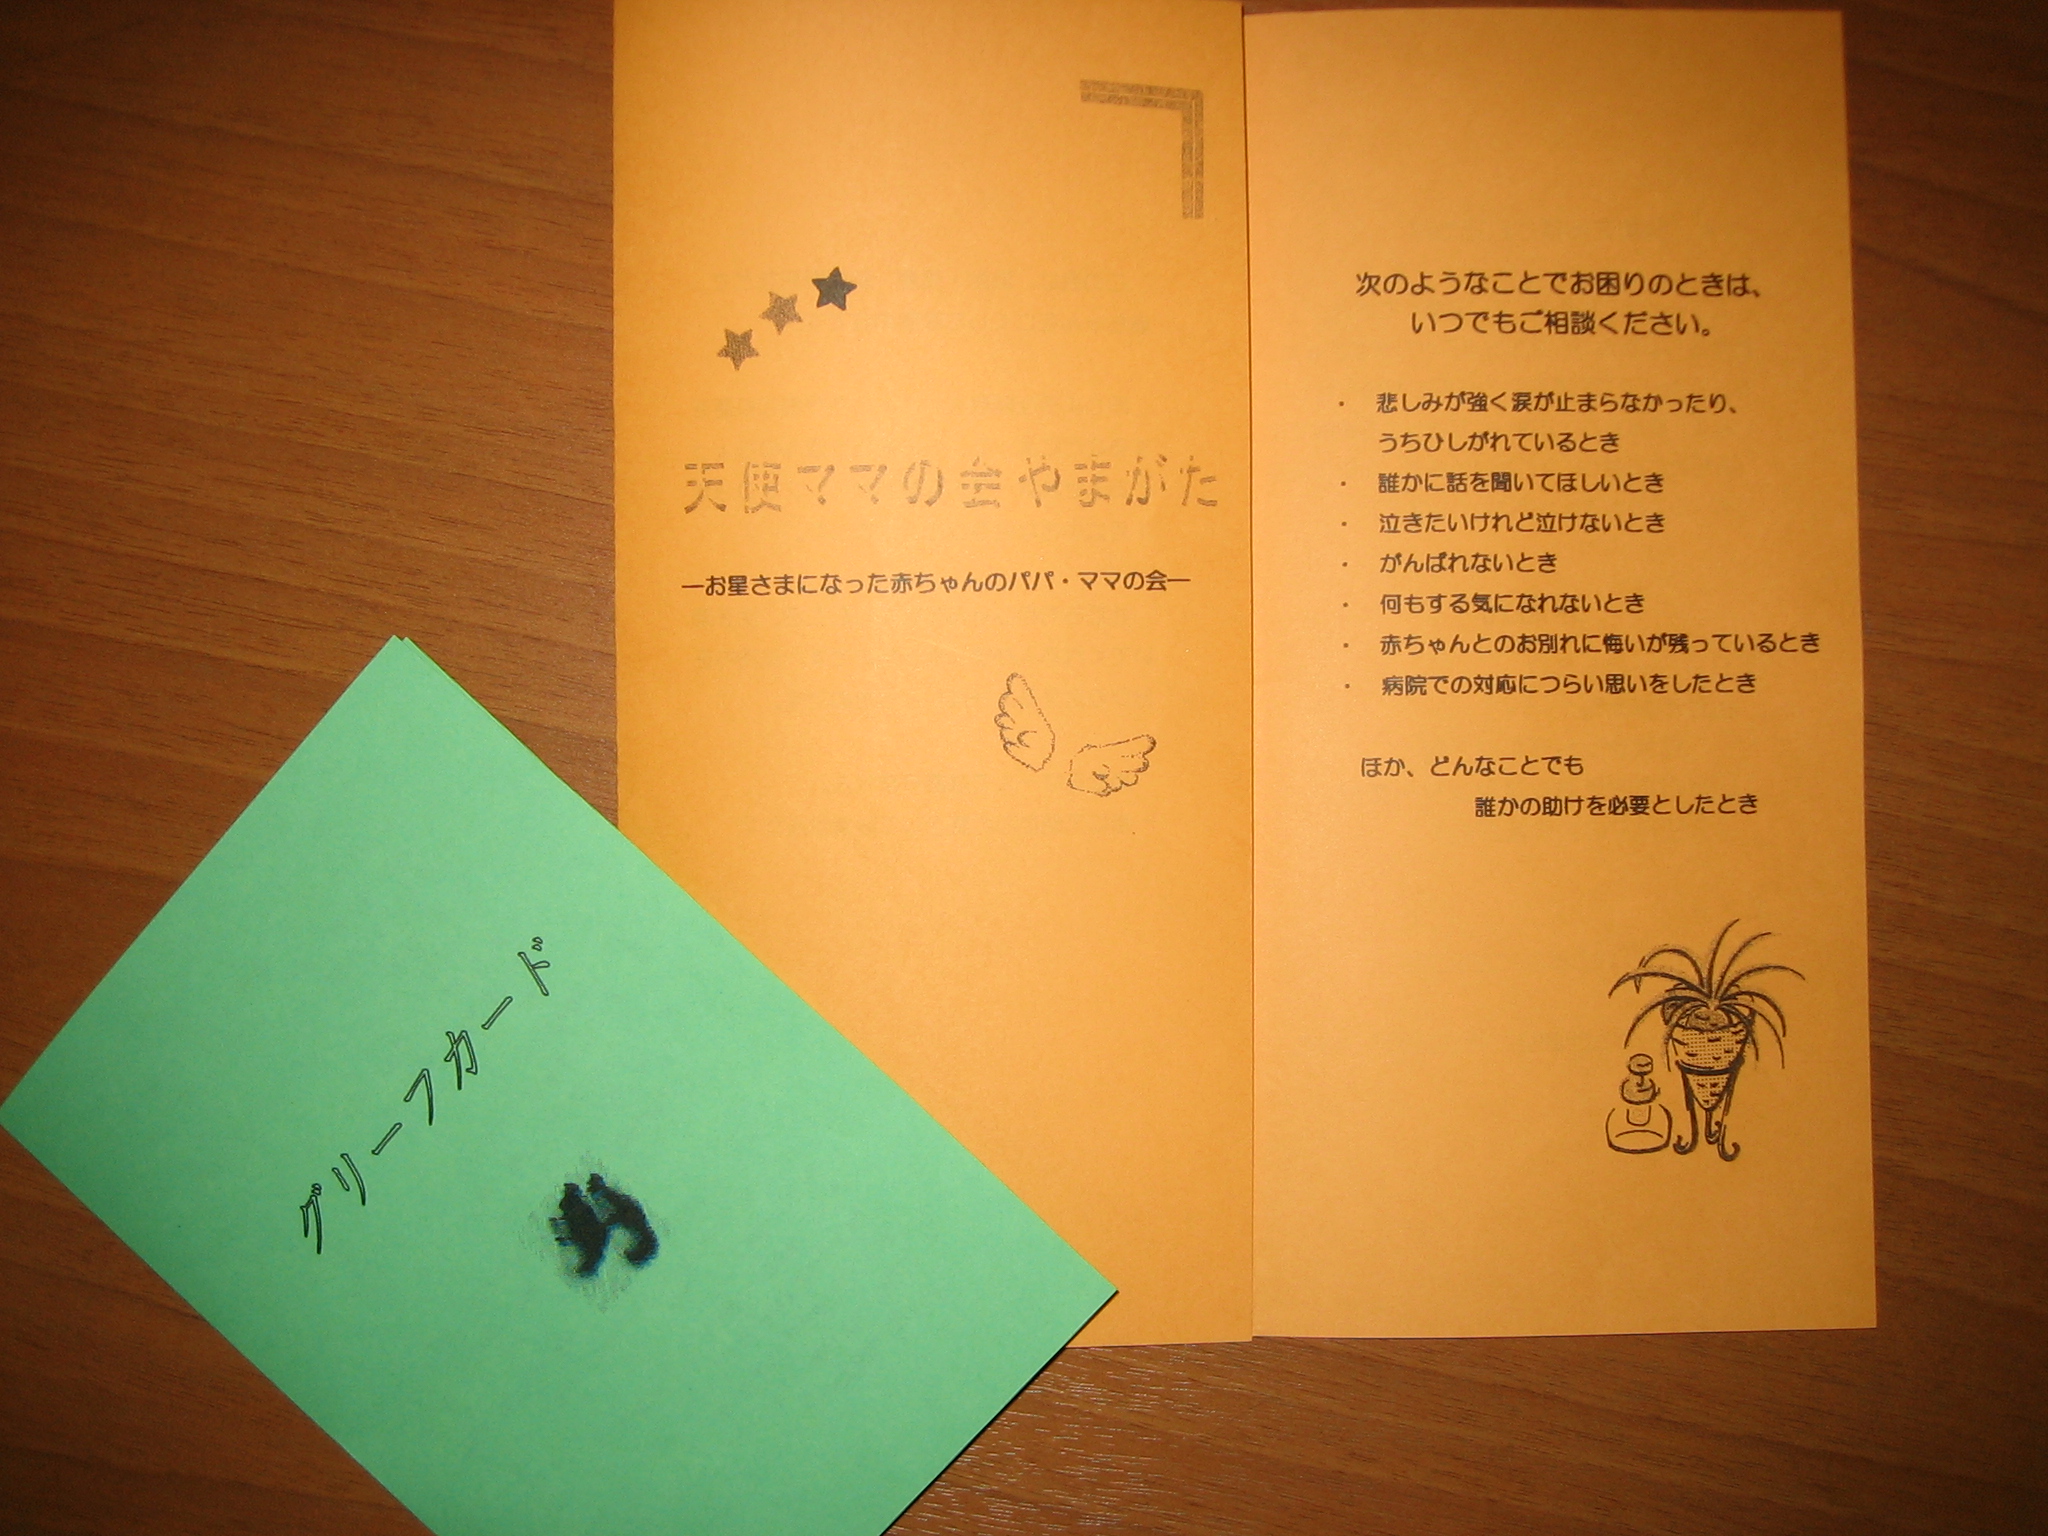 天使ママの会やまがた
―お星さまになった赤ちゃんのパパ・ママの会―
次のようなことでお困りのときは、
いつでもご相談ください。
・ 悲しみが強く涙が止まらなかったり、
うちひしがれているとき
・ 誰かに話を聞いてほしいとき
・ 泣きたいけれど泣けないとき
・ がんばれないとき
・ 何もする気になれないとき
・ 赤ちゃんとのお別れに悔いが残っているとき
・ 病院での対応につらい思いをしたとき
ほか、どんなことでも
誰かの助けを必要としたとき
グリーフカード